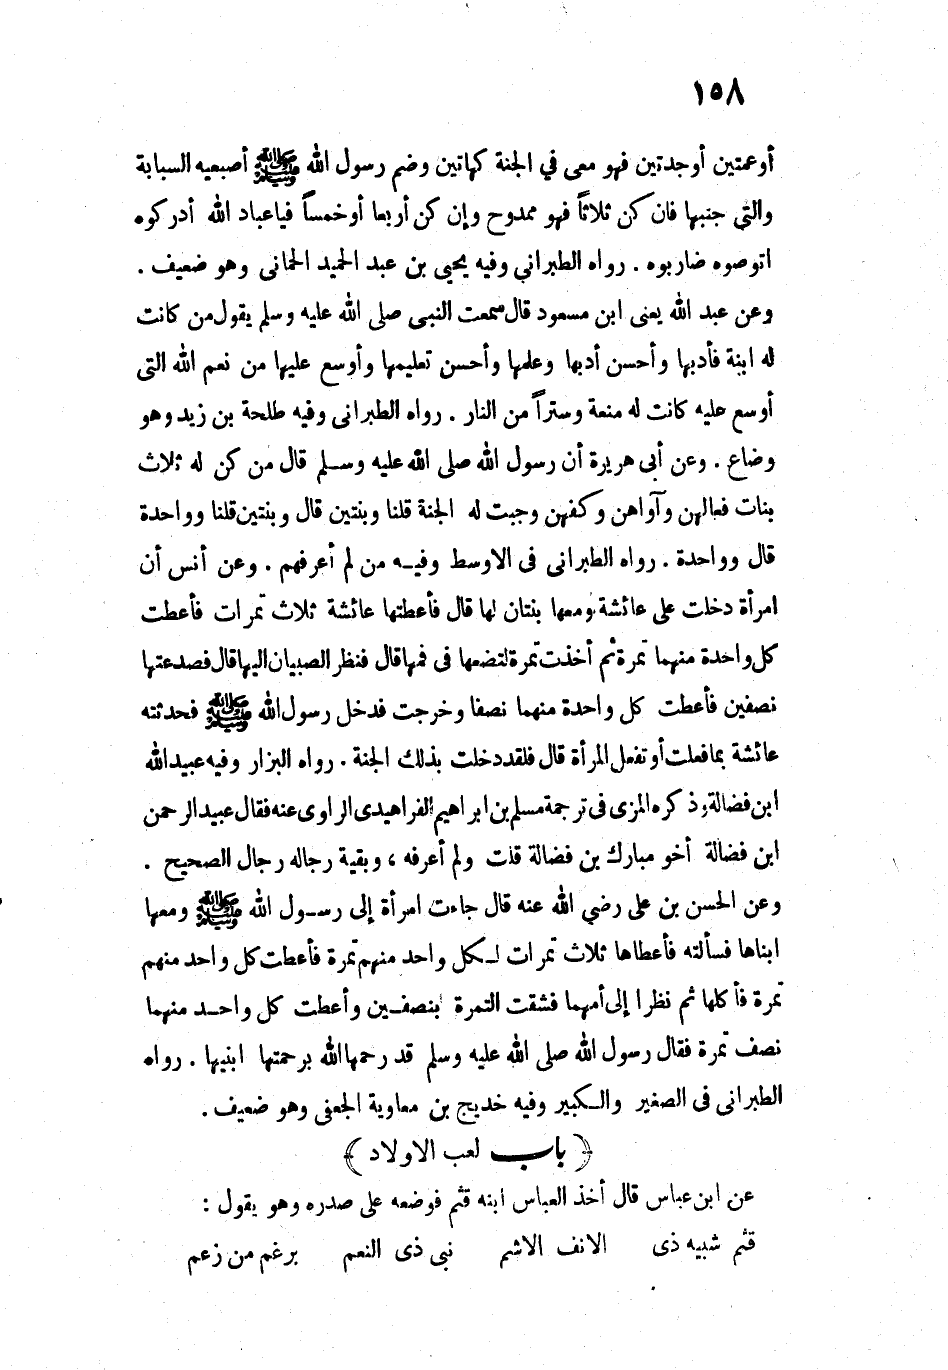 ١٥٨
أو عمتين أو جدتين فهو معى في الجنة كهاتين وضم رسول الله ﷺ أصبعيه السبابة
والتي جنبها فان كن ثلاثاً فهو ممدوح وإن كن أربعا أو خمساً فيا عباد الله أدركوه
اتوصوه ضاربوه . رواه الطبراني وفيه يحيى بن عبد الحميد الحمانى وهو ضعيف .
وعن عبد الله يعنى ابن مسعود قال سمعت النبى صلى الله عليه وسلم يقول من كانت
له ابنة فأدبها وأحسن أدبها وعلمها وأحسن تعليمها وأوسع عليها من نعم الله التى
أوسع عليه كانت له منعة وستراً من النار . رواه الطبرانى وفيه طلحة بن زيد وهو
وضاع . وعن أبى هريرة أن رسول الله صلى الله عليه وسلم قال من كن له ثلاث
بنات فعالهن وآواهن وكفهن وجبت له الجنة قلنا وبنتين قال وبنتين قلنا وواحدة
قال وواحدة . رواه الطبرانى فى الاوسط وفيه من لم أعرفهم . وعن أنس أن
امرأة دخلت على عائشة ومعها بنتان لها قال فأعطتها عائشة ثلاث تمرات فأعطت
كل واحدة منهما تمرة ثم أخذت تمرة لتضعها فى فمها قال فنظر الصبيان اليها قال فصدعتها
نصفين فأعطت كل واحدة منهما نصفا وخرجت فدخل رسول الله ﷺ فحدثته
عائشة بما فعلت أو تفعل المرأة قال فلقد دخلت بذلك الجنة . رواه البزار وفيه عبيد الله
ابن فضالة وذكره المزى فى ترجمة مسلم بن ابراهيم الفراهيدى الراوى عنه فقال عبيد الرحمن
ابن فضالة أخو مبارك بن فضالة قلت ولم أعرفه ، وبقية رجاله رجال الصحيح .
وعن الحسن بن على رضي الله عنه قال جاءت امرأة إلى رسول الله ﷺ ومعها
ابناها فسألته فأعطاها ثلاث تمرات لكل واحد منهم تمرة فأعطت كل واحد منهم
تمرة فأكلها ثم نظرا إلى أمهما فشقت التمرة بنصفين وأعطت كل واحد منهما
نصف تمرة فقال رسول الله صلى الله عليه وسلم قد رحمها الله برحمتها ابنيها . رواه
الطبرانى فى الصغير والكبير وفيه خديج بن معاوية الجعفى وهو ضعيف .
﴿ باب لعب الاولاد ﴾
عن ابن عباس قال أخذ العباس ابنه قثم فوضعه على صدره وهو يقول :
قثم شبيه ذى الانف الاشم نبى ذى النعم برغم من زعم